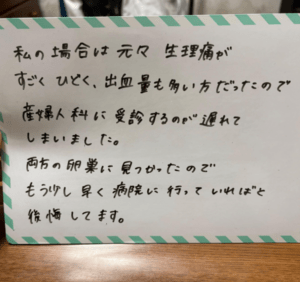 私の場合は元々生理痛が
すごくひどく、出血量も多い方だったので
産婦人科に受診するのが遅れて
しまいました。
両方の卵巣に見つかったので
もう少し早く病院に行っていればと
後悔してます。